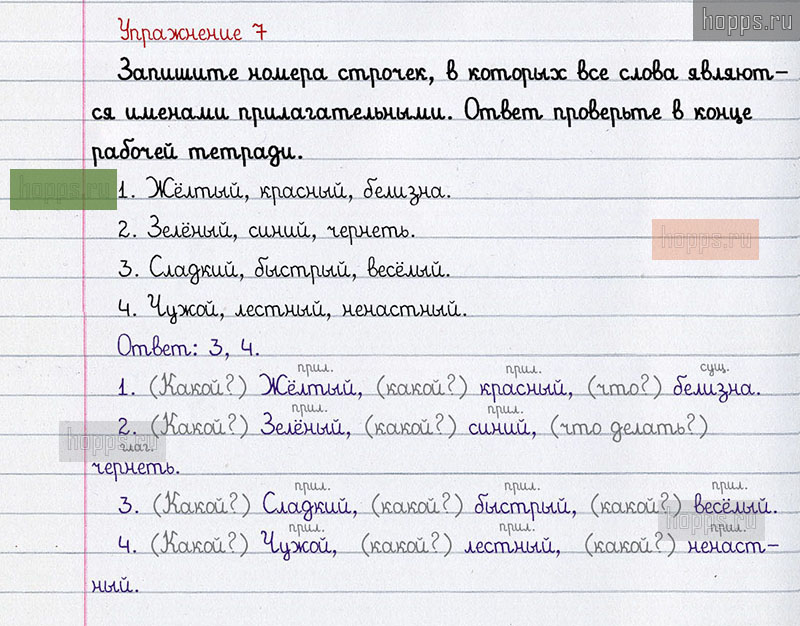 hopps.ru
Упражнение 7
Запишите номера строчек, в которых все слова являют-
ся именами прилагательными. Ответ проверьте в конце
рабочей тетради.
hopps.ru
1. Жёлтый, красный, белизна.
2. Зелёный, синий, чернеть.
hopps.ru
3. Сладкий, быстрый, весёлый.
4. Чужой, лестный, ненастный.
Ответ: 3, 4.
прил. прил. сущ.
1. (Какой?) Жёлтый, (какой?) красный, (что?) белизна.
прил. прил.
2. (Какой?) Зелёный, (какой?) синий, (что делать?)
hopps.ru
глаг.
чернеть.
прил. прил. прил.
3. (Какой?) Сладкий, (какой?) быстрый, (какой?) весёлый.
hopps.ru
прил. прил. прил.
4. (Какой?) Чужой, (какой?) лестный, (какой?) ненаст-
ный.